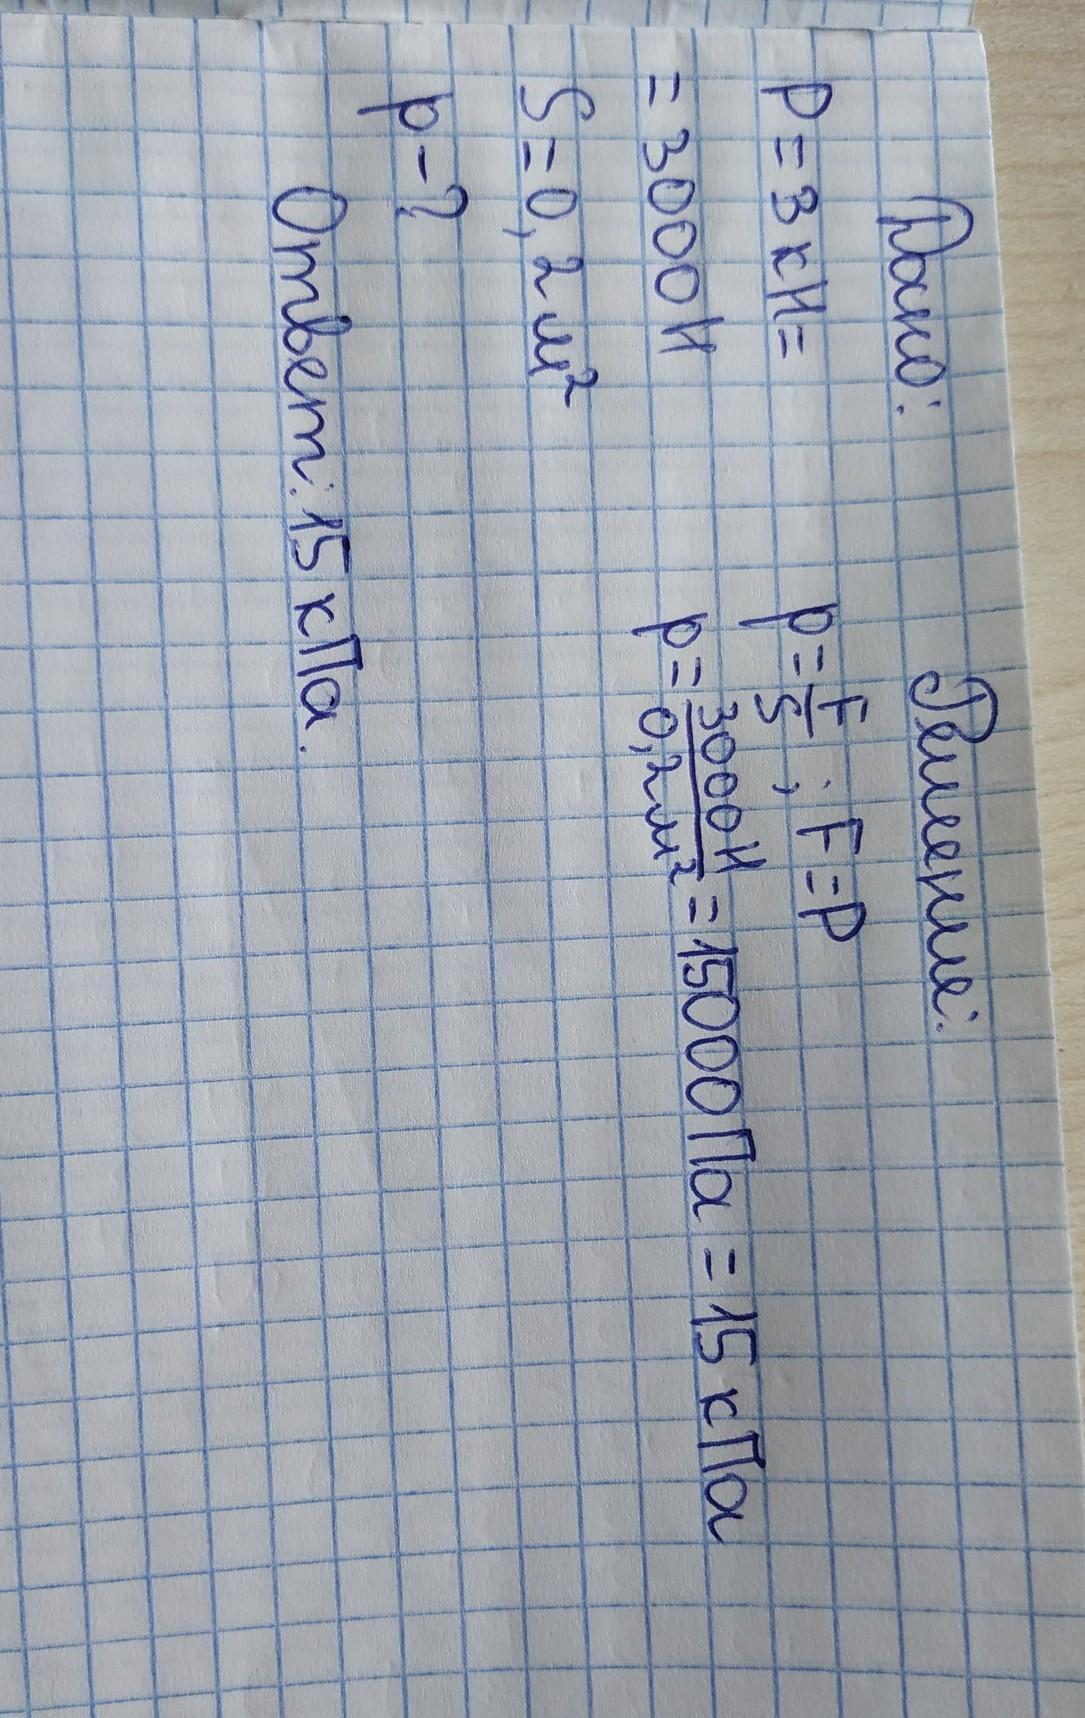 Дано:
P = 3 кН =
= 3000 Н
S = 0,2 м²
p - ?
Решение:
p = F/S ; F = P
p = 3000 Н / 0,2 м² = 15000 Па = 15 кПа
Ответ: 15 кПа.